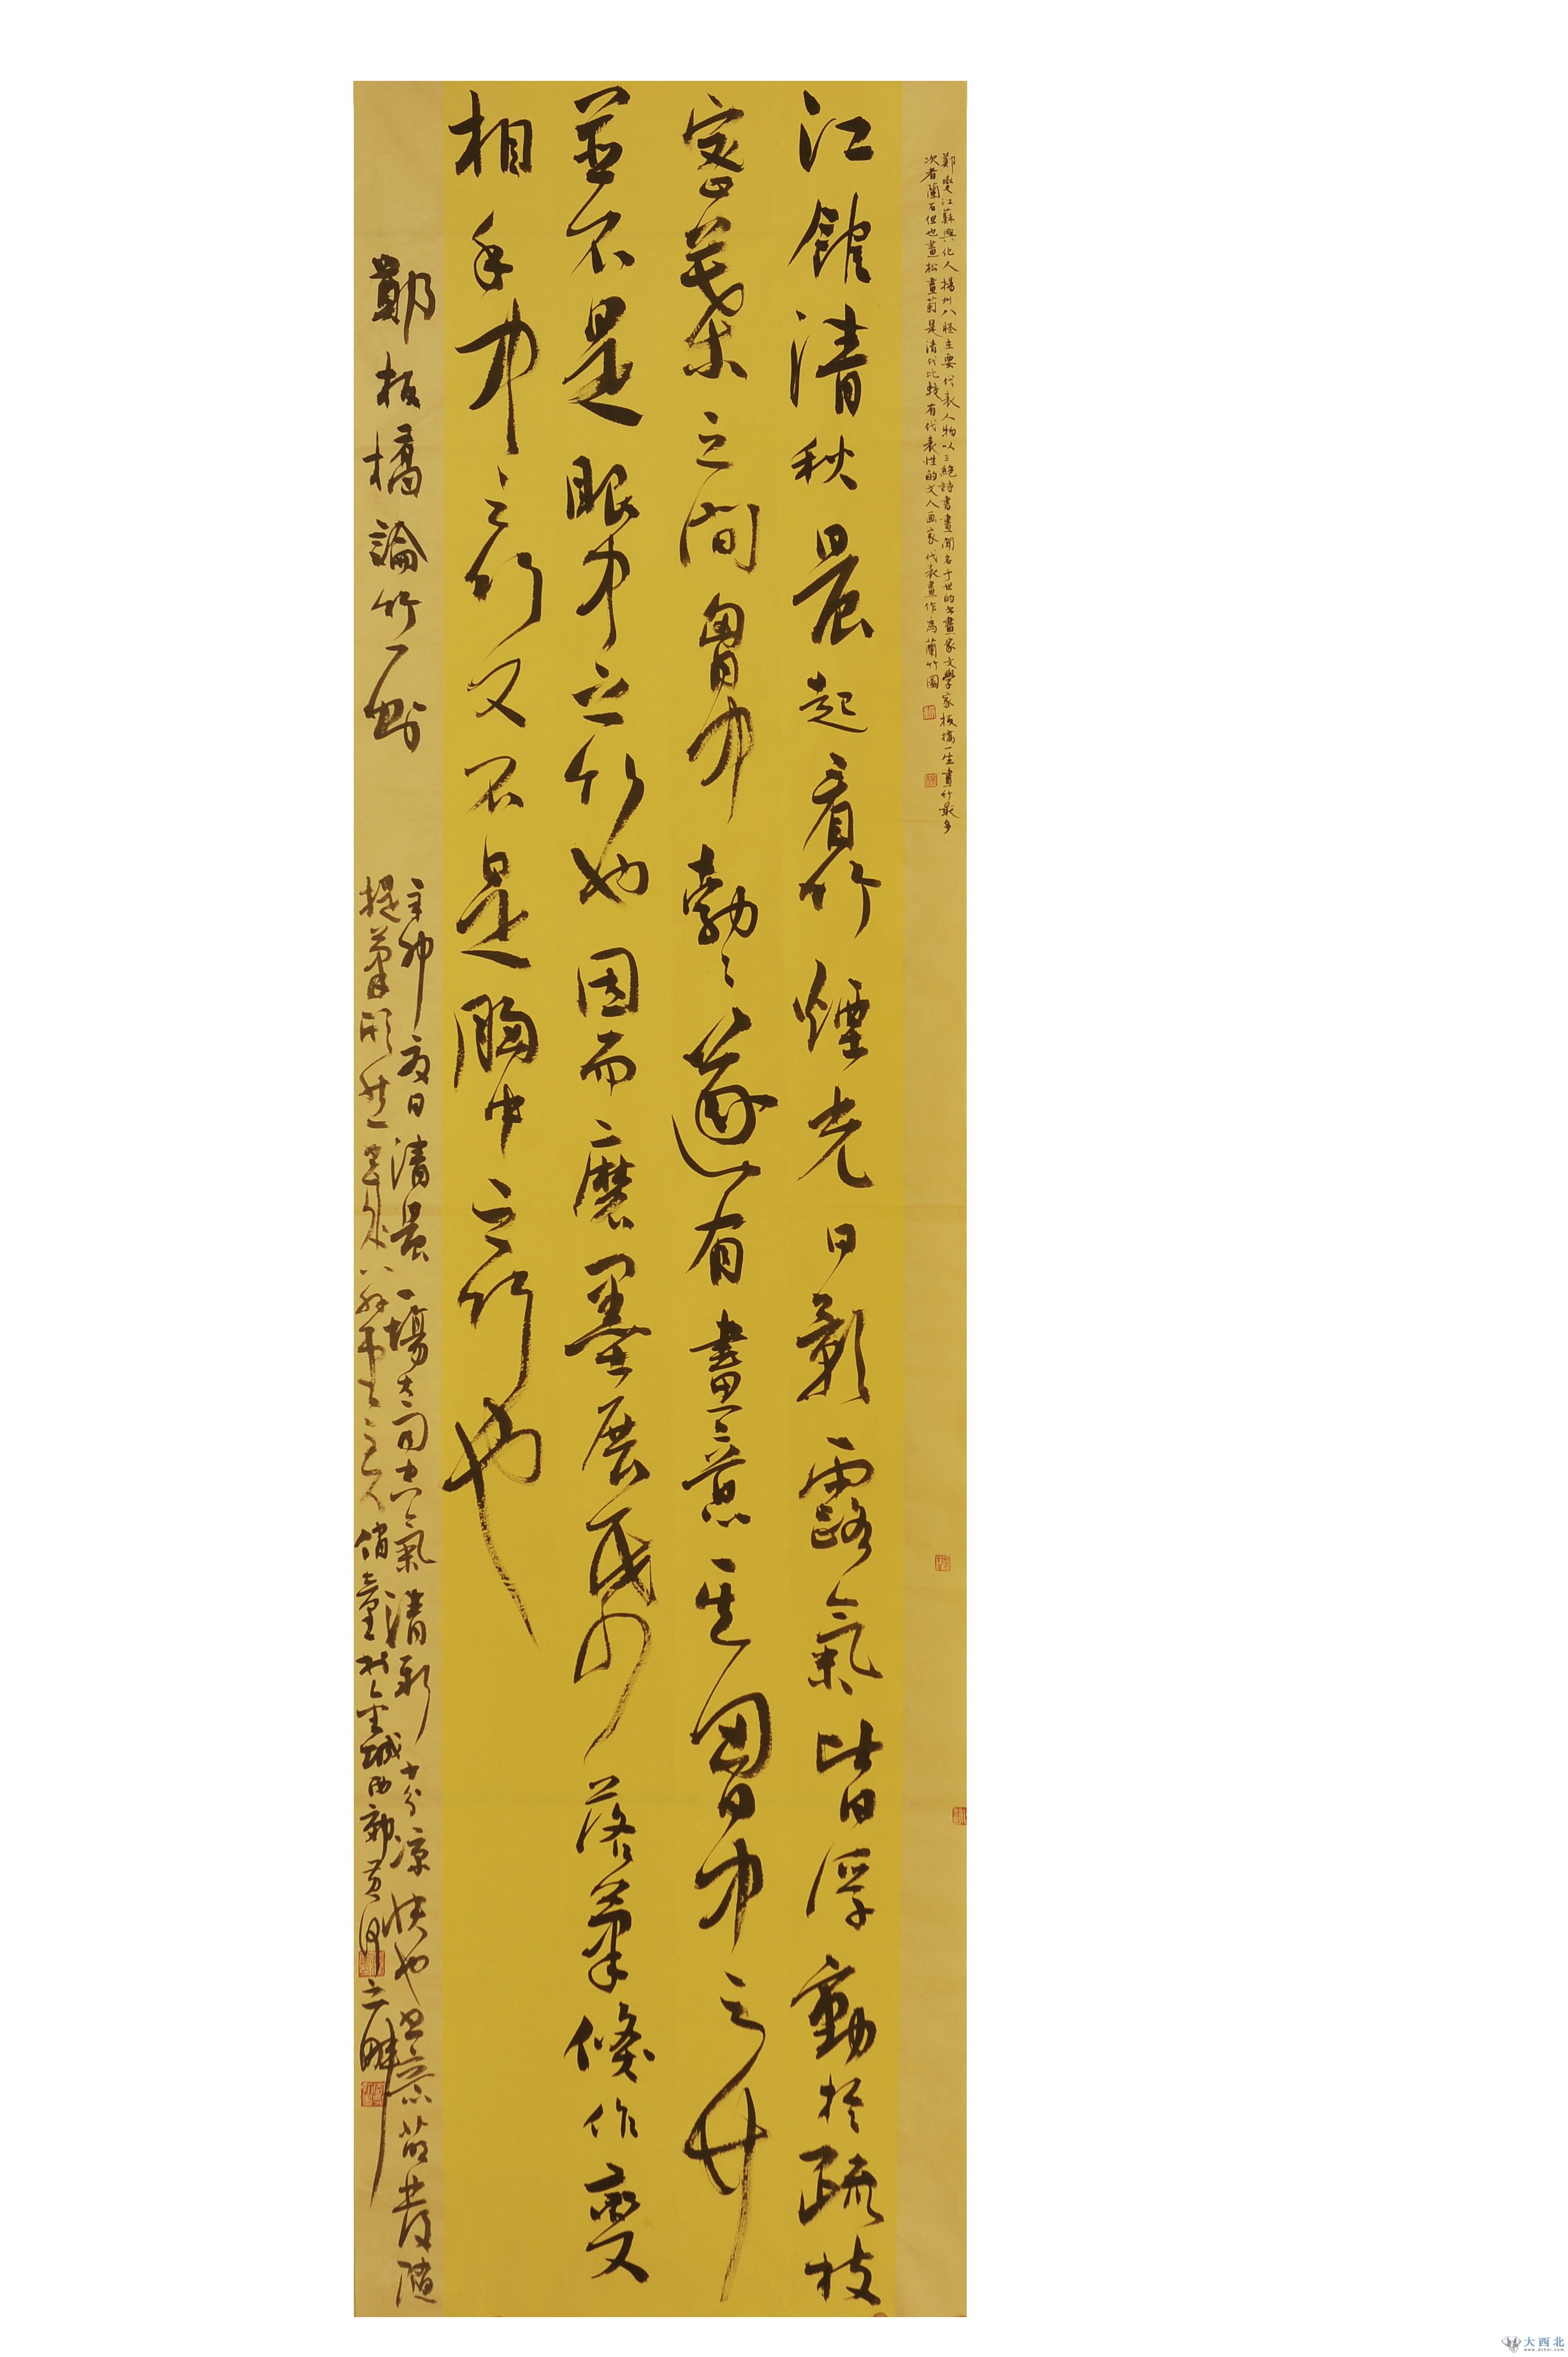 鄭燮江蘇興化人揚州八怪主要代表人物以三絕詩書畫聞名于世的書畫家文學家板橋一生畫竹最多
次者蘭石但也畫松畫菊是清代比較有代表性的文人画家代表畫作為蘭竹圖
江館清秋晨起看竹煙光日影露氣皆浮動於疏枝
密葉之間胷中勃々遂有畫意其胷中之竹
並不是眼中之竹也因而磨墨展紙落筆倏作變
相手中之竹又不是胸中之竹也
鄭板橋論竹一則
辛卯夏日清晨一場大雨空氣清新十分凉快也隨
提筆主人於金城西郊黃河之畔
大西北